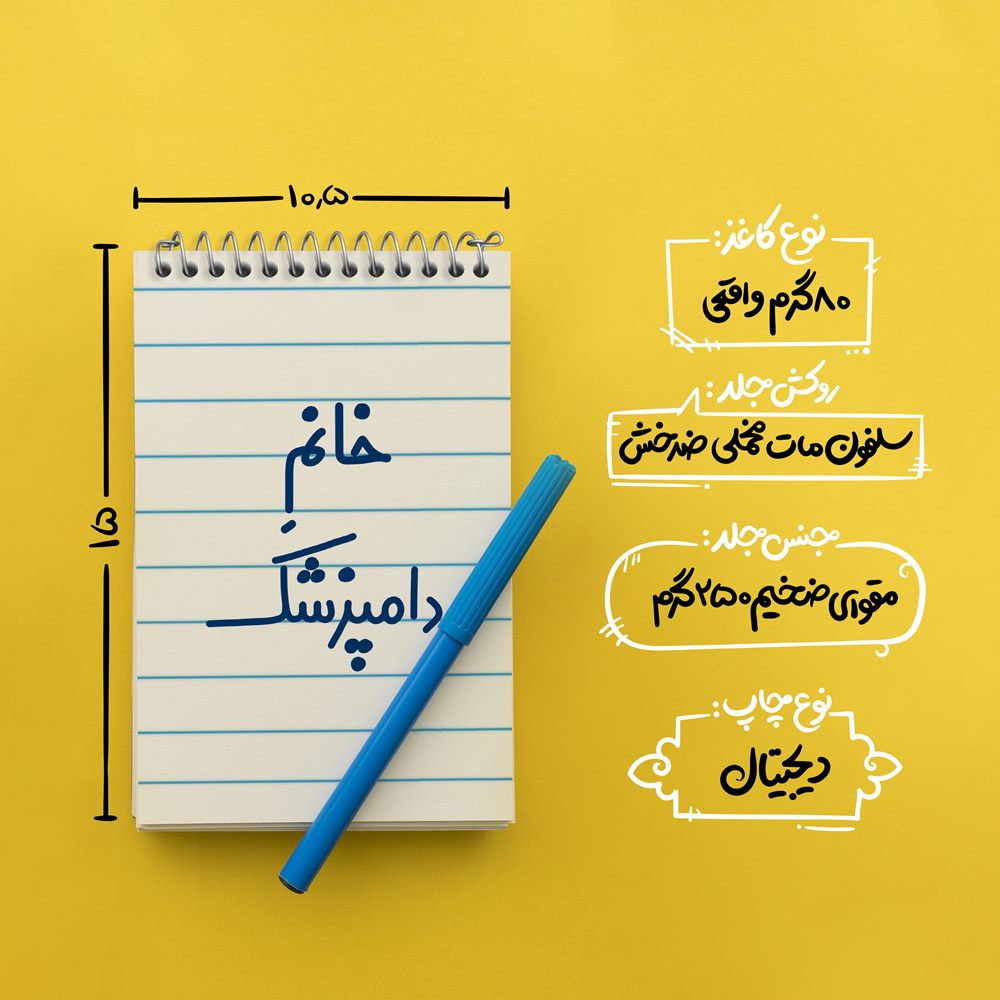 ۱۰٫۵
۱۵
خانم
دامپزشک
نوع کاغذ:
۸۰ گرم واقعی
روکش جلد:
سلفون مات مخملی ضدخش
جنس جلد:
مقوای ضخیم ۲۵۰ گرم
نوع چاپ:
دیجیتال